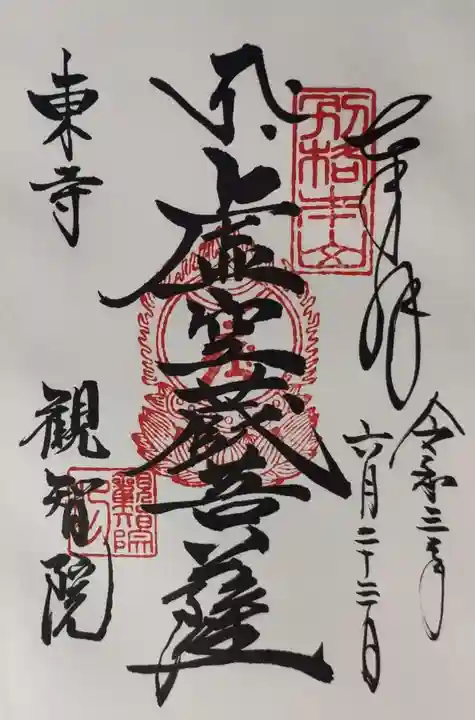 奉拝
令和三年
六月二十二日
別格本山
虚空蔵菩薩
東寺
観智院